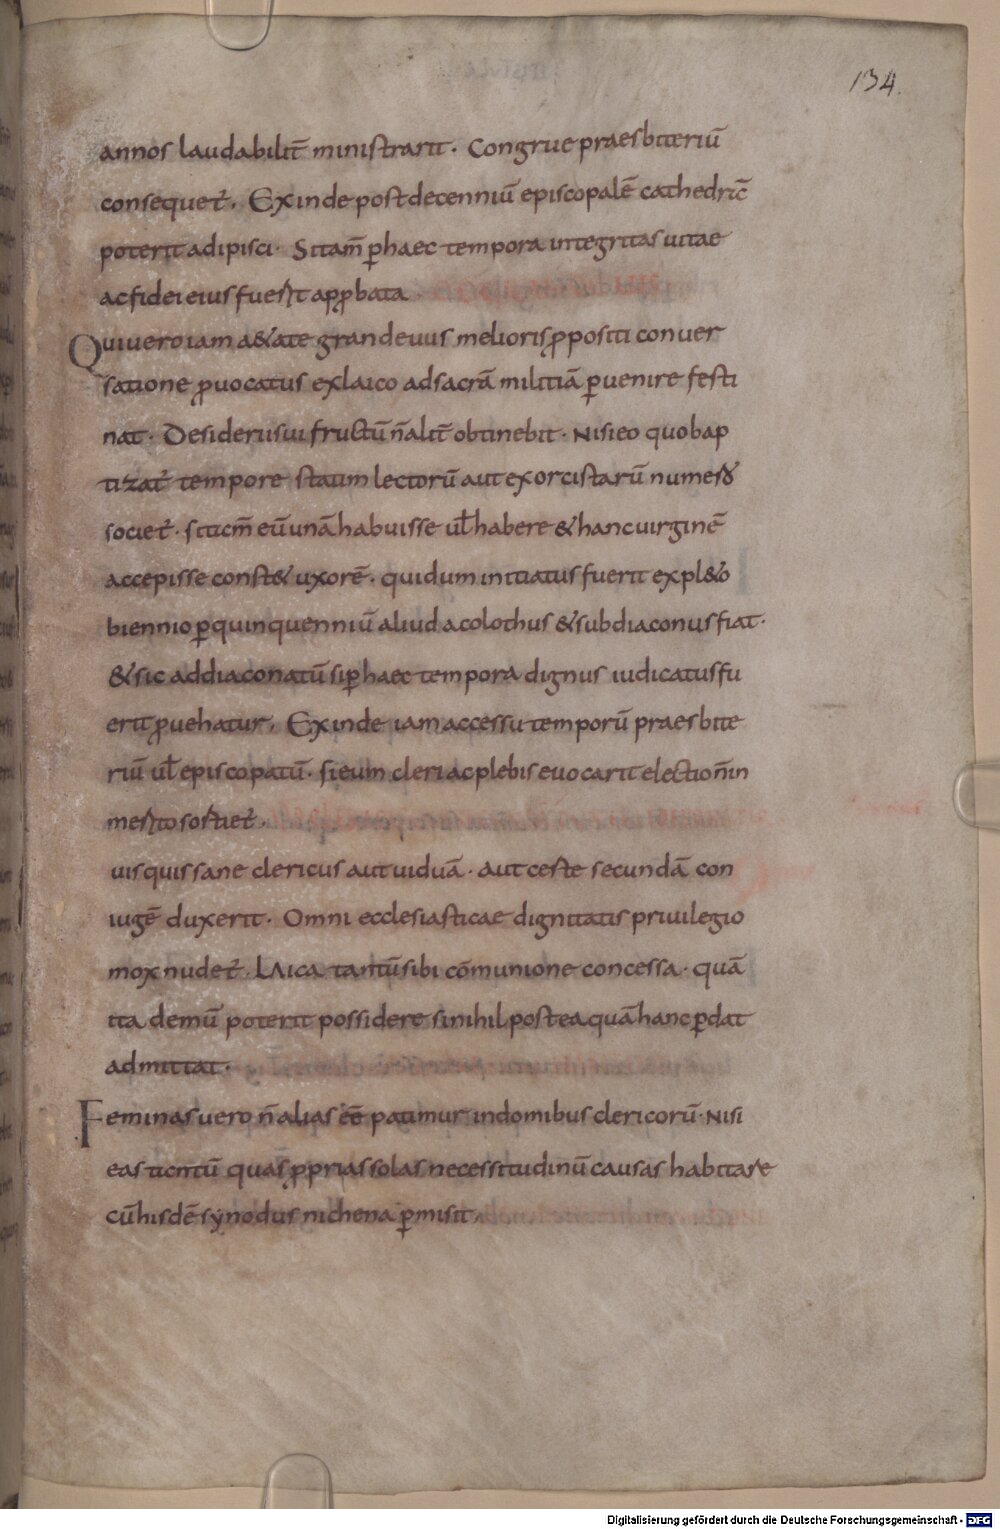 134.
annos laudabilit̄ ministrarit. Congrue praesbiteriū
consequet̄. Exinde post decenniū episcopalē cathedrā
poterit adipisci. Si tam̄ p̱ haec tempora integritas uitae
ac fidei eius fuerit app̱bata.
Qui uero iam a&ate grandeuus melioris p̱positi conuer
satione p̱uocatus ex laico ad sacrā militiā p̱uenire festi
nat. Desiderii sui fructū n̄ alit̄ obtinebit. Nisi eo quo bap
tizat̄ tempore statim lectorū aut exorcistarū numero
societ̄. si tam̄ eū unā habuisse ul̄ habere & hanc uirginē
accepisse const& uxorē. qui dum initiatus fuerit expl&o
biennio p̱ quinquenniū aliud acolothus & subdiaconus fiat.
& sic ad diaconatū si p̱ haec tempora dignus iudicatus fu
erit p̱uehatur. Exinde iam accessu temporū praesbite
riū ul̄ episcopatū. si eum cleri ac plebis euocarit election̄ in
merito sortiet̄.
uisquis sane clericus aut uiduā. Aut certe secundā con
iugē duxerit. Omni ecclesiasticae dignitatis priuilegio
mox nudet̄. Laica tantū sibi cōmunione concessa. quā
ita demū poterit possidere si nihil postea quā hanc p̱dat
admittat.
Feminas uero n̄ alias ēē patimur in domibus clericorū. Nisi
eas tantū quas p̱prias solas necessitudinū causas habitare
cū hisdē synodus nichena p̱misit.
Digitalisierung gefördert durch die Deutsche Forschungsgemeinschaft - DFG